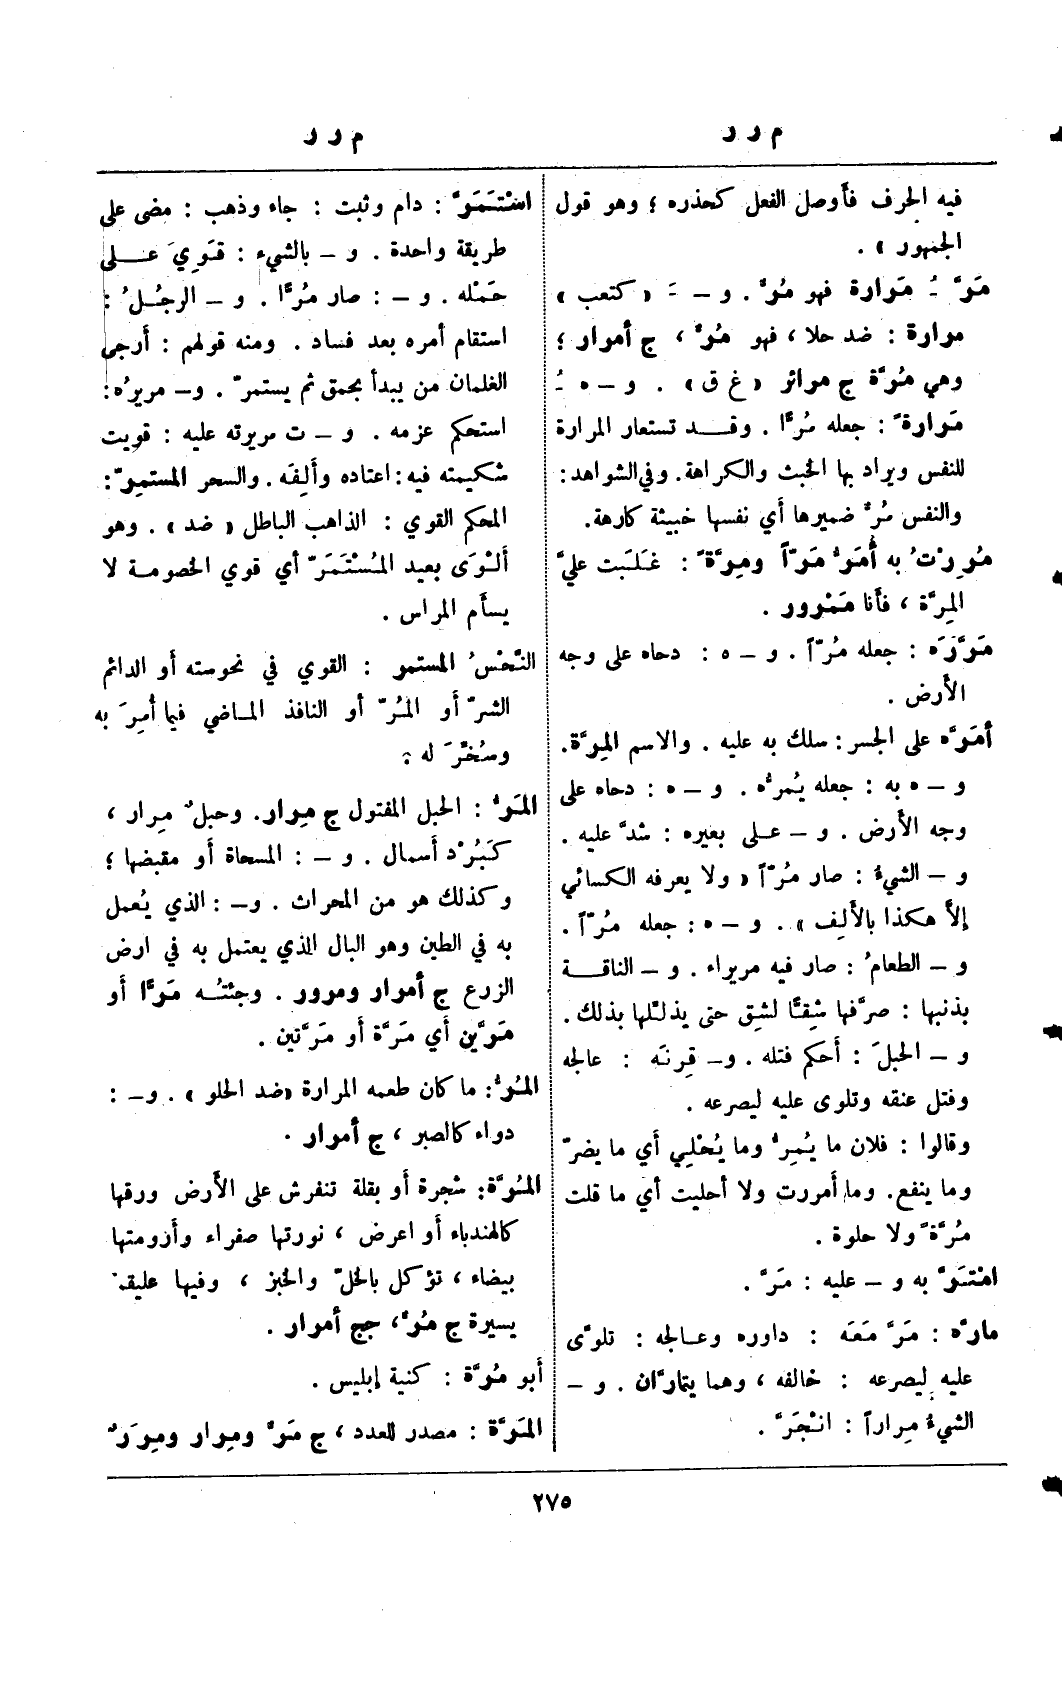 م ر ر
م ر ر
فيه الحرف فأوصل الفعل كحذره ؛ وهو قول
الجمهور » .
مَرَّ ـُ مَرارة فهو مُرٌّ . و – ـَ « كتعب »
مرارة : ضد حلا ، فهو مُرٌّ ، ج أمرار ؛
وهي مُرَّة ج مرائر « غ ق » . و – ه ـُ
مَرارةً : جعله مُرًّا . وقـد تستعار المرارة
للنفس ويراد بها الخبث والكراهة. وفي الشواهد:
والنفس مُرٌّ ضميرها أي نفسها خبيثة كارهة.
مُرِرْتُ به أُمَرُّ مَرّاً ومِرَّةً : غَلَبت عليَّ
المِرَّة ، فأنا مَمْرور .
مَرَّرَه : جعله مُرّاً . و – ه : دحاه على وجه
الأرض .
أمَرَّه على الجسر : سلك به عليه . والاسم المِرَّة.
و – ه به : جعله يُمرُّه . و – ه : دحاه على
وجه الأرض . و – عـلى بعيره : شدَّ عليه .
و – الشيءُ : صار مُرّاً « ولا يعرفه الكسائي
إلاَّ هكذا بالألِف » . و – ه : جعله مُرّاً .
و – الطعامُ : صار فيه مريراء . و – الناقـة
بذنبها : صرَّفها شِقًّا لشِق حتى يذلّلها بذلك .
و – الحبلَ : أحكم فتله . و– قِرنَه : عالجه
وفتل عنقه وتلوى عليه ليصرعه .
وقالوا : فلان ما يُمِرُّ وما يُحْلِي أي ما يضرّ
وما ينفع. وما أمررت ولا أحليت أي ما قلت
مُرَّةً ولا حلوة .
امْتَرَّ به و – عليه : مَرَّ .
مارَّه : مَرَّ مَعَه : داوره وعـالجه : تلوّى
عليه ليصرعه : خالفه ، وهما يتمارَّان . و –
الشيءُ مِراراً : انْجَرَّ .
اسْتَمَرَّ : دام وثبت : جاء وذهب : مضى على
طريقة واحدة . و – بالشيء : قَوِيَ عـلى
حَمْله . و – : صار مُرًّا . و – الرجُلُ :
استقام أمره بعد فساد . ومنه قولهم : أرجى
الغلمان من يبدأ بحمق ثم يستمرّ . و– مريرُه:
استحكم عزمه . و – ت مريرته عليه : قويت
شكيمته فيه : اعتاده وألِفَه . والسحر المستمِرّ :
المحكم القوي : الذاهب الباطل « ضد » . وهو
ألْوَى بعيد المُسْتَمَرّ أي قوي الخصومـة لا
يسأم المراس .
النَّحْسُ المستمر : القوي في نحوسته أو الدائم
الشرّ أو المُرّ أو النافذ المـاضي فيما أُمِرَ به
وسُخِّرَ له .
المَرُّ : الحبل المفتول ج مِرار. وحبلٌ مِرار ،
كَبُرْد أسمال . و – : المسحاة أو مقبضها ؛
وكذلك هو من المحراث . و– : الذي يُعمل
به في الطين وهو البال الذي يعتمل به في ارض
الزرع ج أمرار ومرور . وجئتُه مَرًّا أو
مَرَّين أي مَرَّة أو مَرَّتين .
المُرُّ : ما كان طعمه المرارة «ضد الحلو » . و– :
دواء كالصبر ، ج أمرار .
المُرَّة : شجرة أو بقلة تنفرش على الأرض ورقها
كالهندباء أو اعرض ، نورتها صفراء وأزومتها
بيضاء ، تؤكل بالخلّ والخبز ، وفيها عليقـ
يسيرة ج مُرٌّ ، جج أمرار .
أبو مُرَّة : كنية إبليس .
المَرَّة : مصدر للعدد ، ج مَرٌّ ومِرار ومِرَرٌ
٢٧٥